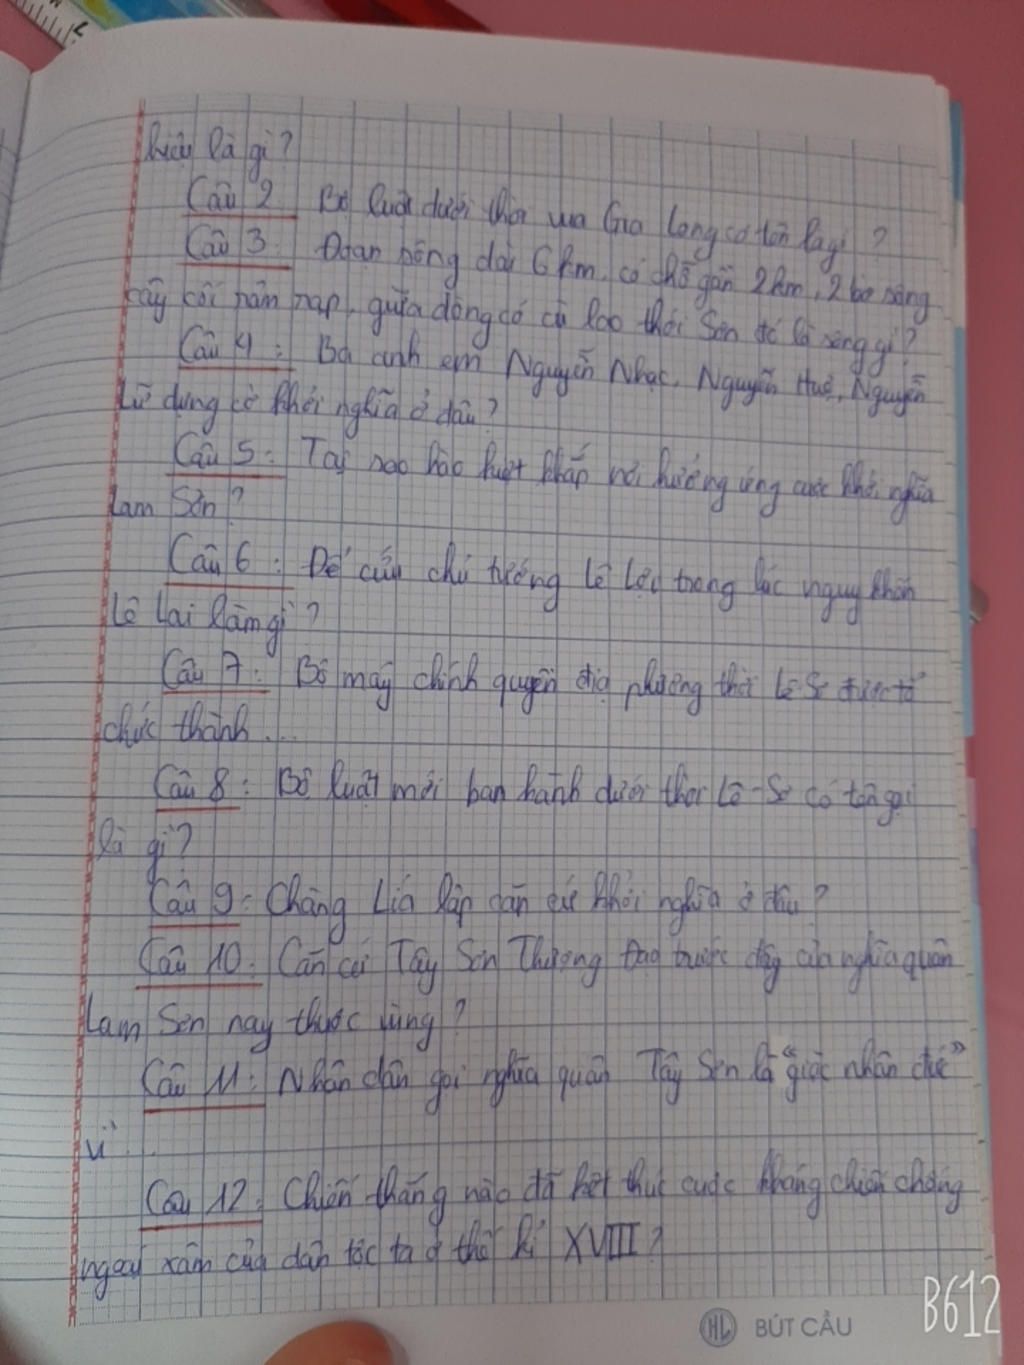 hiệu là gì?
Câu 2: Bộ luật dưới thời vua Gia Long có tên là gì?
Câu 3: Đoạn sông dài 6km, có chỗ gần 2km, 2 bờ sông
cây cối rậm rạp, giữa dòng có cù lao thới Sơn đó là sông gì?
Câu 4: Ba anh em Nguyễn Nhạc, Nguyễn Huệ, Nguyễn
Lữ dựng cờ khởi nghĩa ở đâu?
Câu 5: Tại sao hào kiệt khắp nơi hưởng ứng cuộc khởi nghĩa
Lam Sơn?
Câu 6: Để cứu chủ tướng Lê Lợi trong lúc nguy khốn
Lê Lai làm gì?
Câu 7: Bộ máy chính quyền địa phương thời Lê Sơ được tổ
chức thành...
Câu 8: Bộ luật mới ban hành dưới thời Lê-Sơ có tên gọi
là gì?
Câu 9: Chàng Lía lập căn cứ khởi nghĩa ở đâu?
Câu 10: Căn cứ Tây Sơn Thượng Đạo trước đây của nghĩa quân
Lam Sơn nay thuộc vùng?
Câu 11: Nhân dân gọi nghĩa quân Tây Sơn là "giặc nhân đức"
vì...
Câu 12: Chiến thắng nào đã kết thúc cuộc kháng chiến chống
ngoại xâm của dân tộc ta ở thế kỉ XVIII?
HL BÚT CẦU
B612